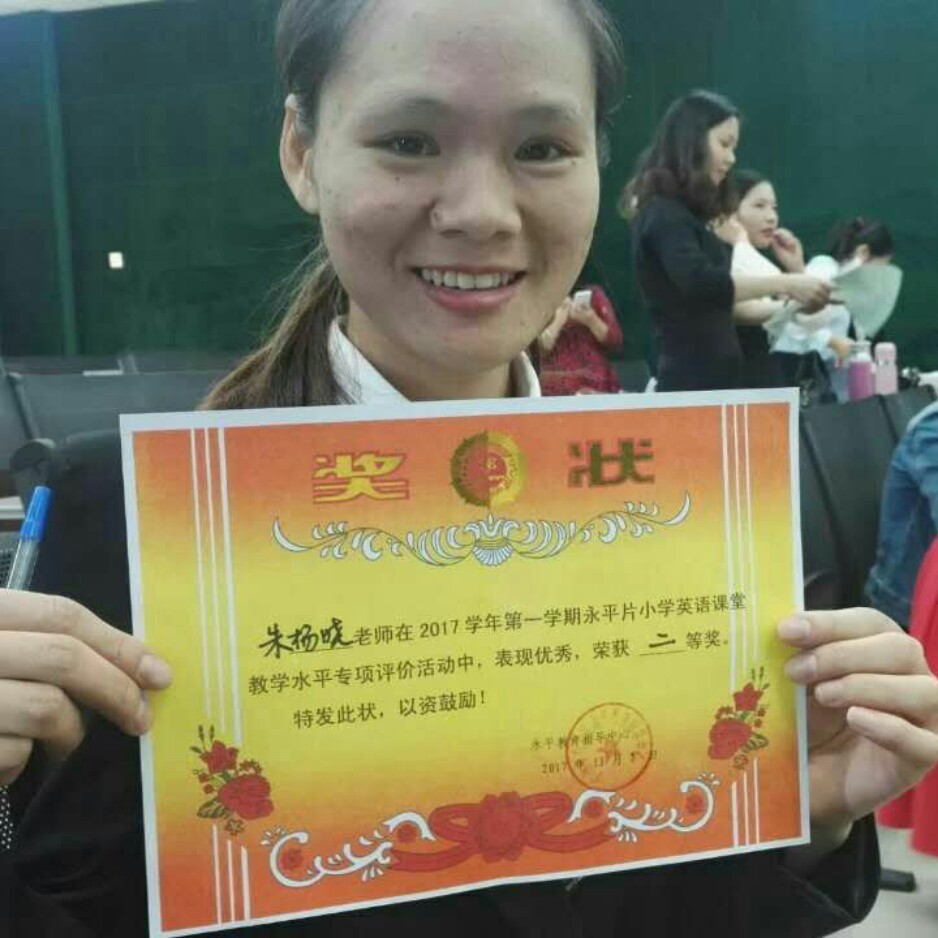 奖状
朱杨晓老师在2017学年第一学期永平片小学英语课堂
教学水平专项评价活动中，表现优秀，荣获 二 等奖。
特发此状，以资鼓励！
永平教育指导中心
2017年11月 日